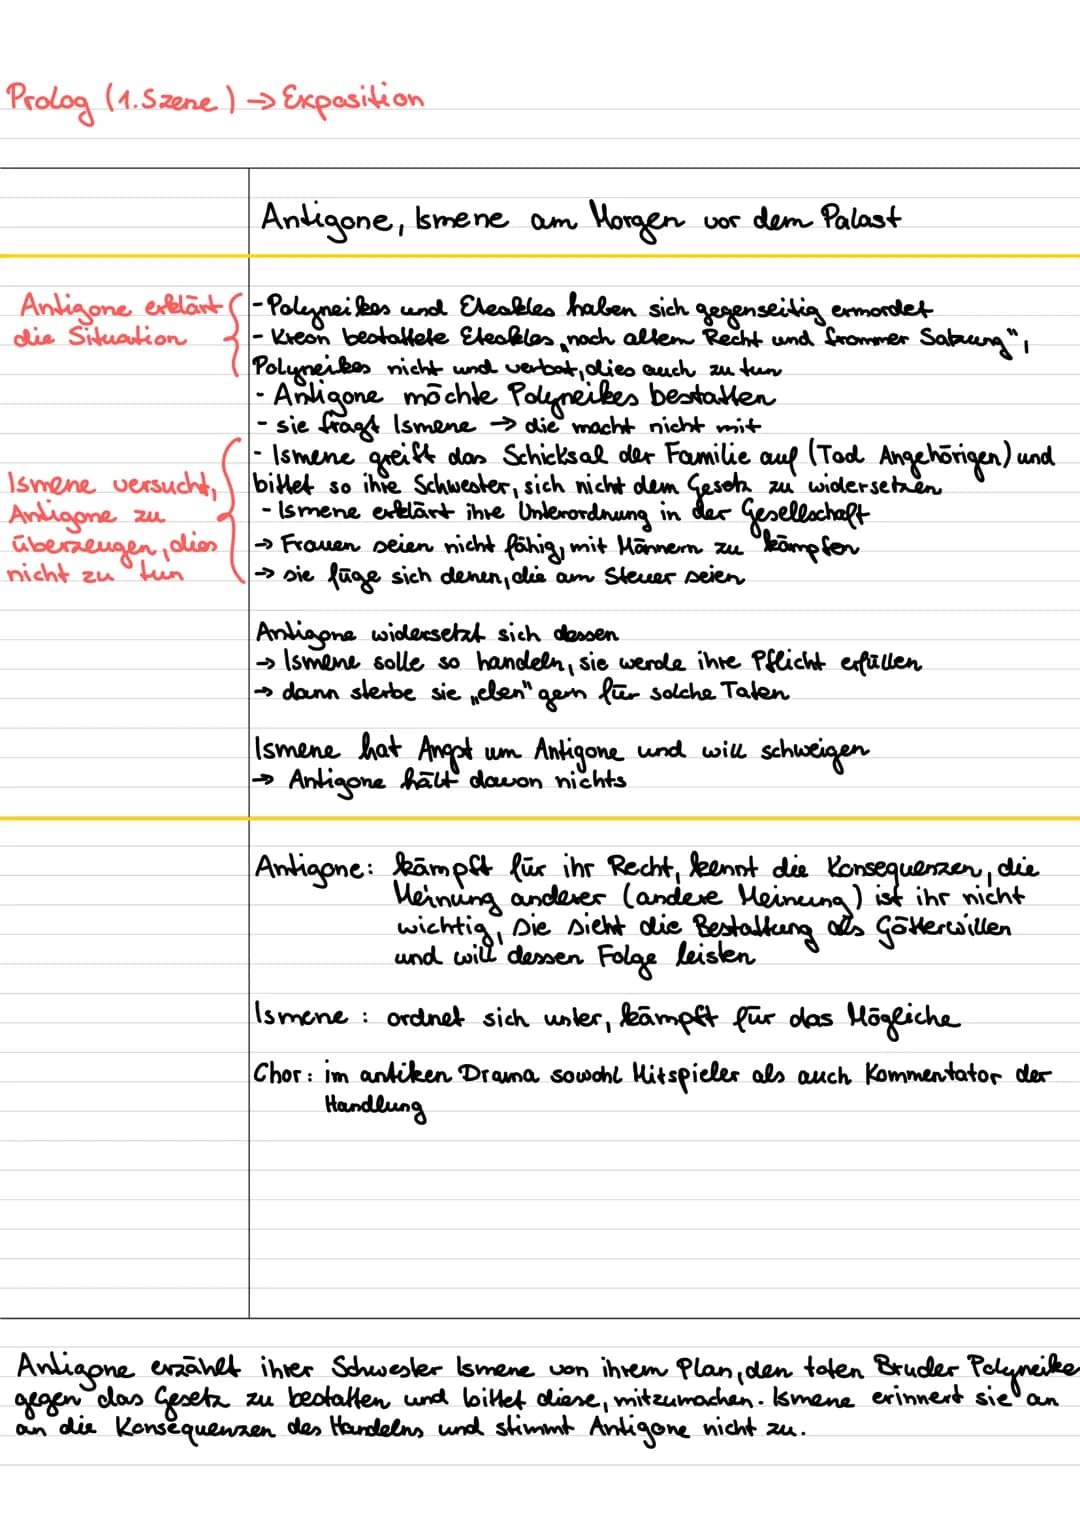 Prolog (1. Szene) → Exposition
Antigone, Ismene am Morgen vor dem Palast
Antigone erklärt
die Situation
- Polyneikes und Eteokles haben sich gegenseitig ermordet
- Kreon bestattete Eteokles „nach altem Recht und frommer Satzung",
Polyneikes nicht und verbot, dies auch zu tun
- Antigone möchte Polyneikes bestatten
- sie fragt Ismene → die macht nicht mit
Ismene versucht,
Antigone zu
überzeugen, dies
nicht zu tun
- Ismene greift das Schicksal der Familie auf (Tod Angehörigen) und
bittet so ihre Schwester, sich nicht dem Gesetz zu widersetzen
- Ismene erklärt ihre Unterordnung in der Gesellschaft
→ Frauen seien nicht fähig, mit Männern zu kämpfen
→ sie füge sich denen, die am Steuer seien
Antigone widersetzt sich dessen
→ Ismene solle so handeln, sie werde ihre Pflicht erfüllen
→ dann sterbe sie „eben" gern für solche Taten
Ismene hat Angst um Antigone und will schweigen
→ Antigone hält davon nichts
Antigone: kämpft für ihr Recht, kennt die Konsequenzen, die
Meinung anderer (andere Meinung) ist ihr nicht
wichtig, Sie sieht die Bestattung als Götterwillen
und will dessen Folge leisten
Ismene: ordnet sich unter, kämpft für das Mögliche
Chor: im antiken Drama sowohl Mitspieler als auch Kommentator der
Handlung
Antigone erzählt ihrer Schwester Ismene von ihrem Plan, den toten Bruder Polyneike
gegen das Gesetz zu bestatten und bittet diese, mitzumachen. Ismene erinnert sie an
an die Konsequenzen des Handelns und stimmt Antigone nicht zu.